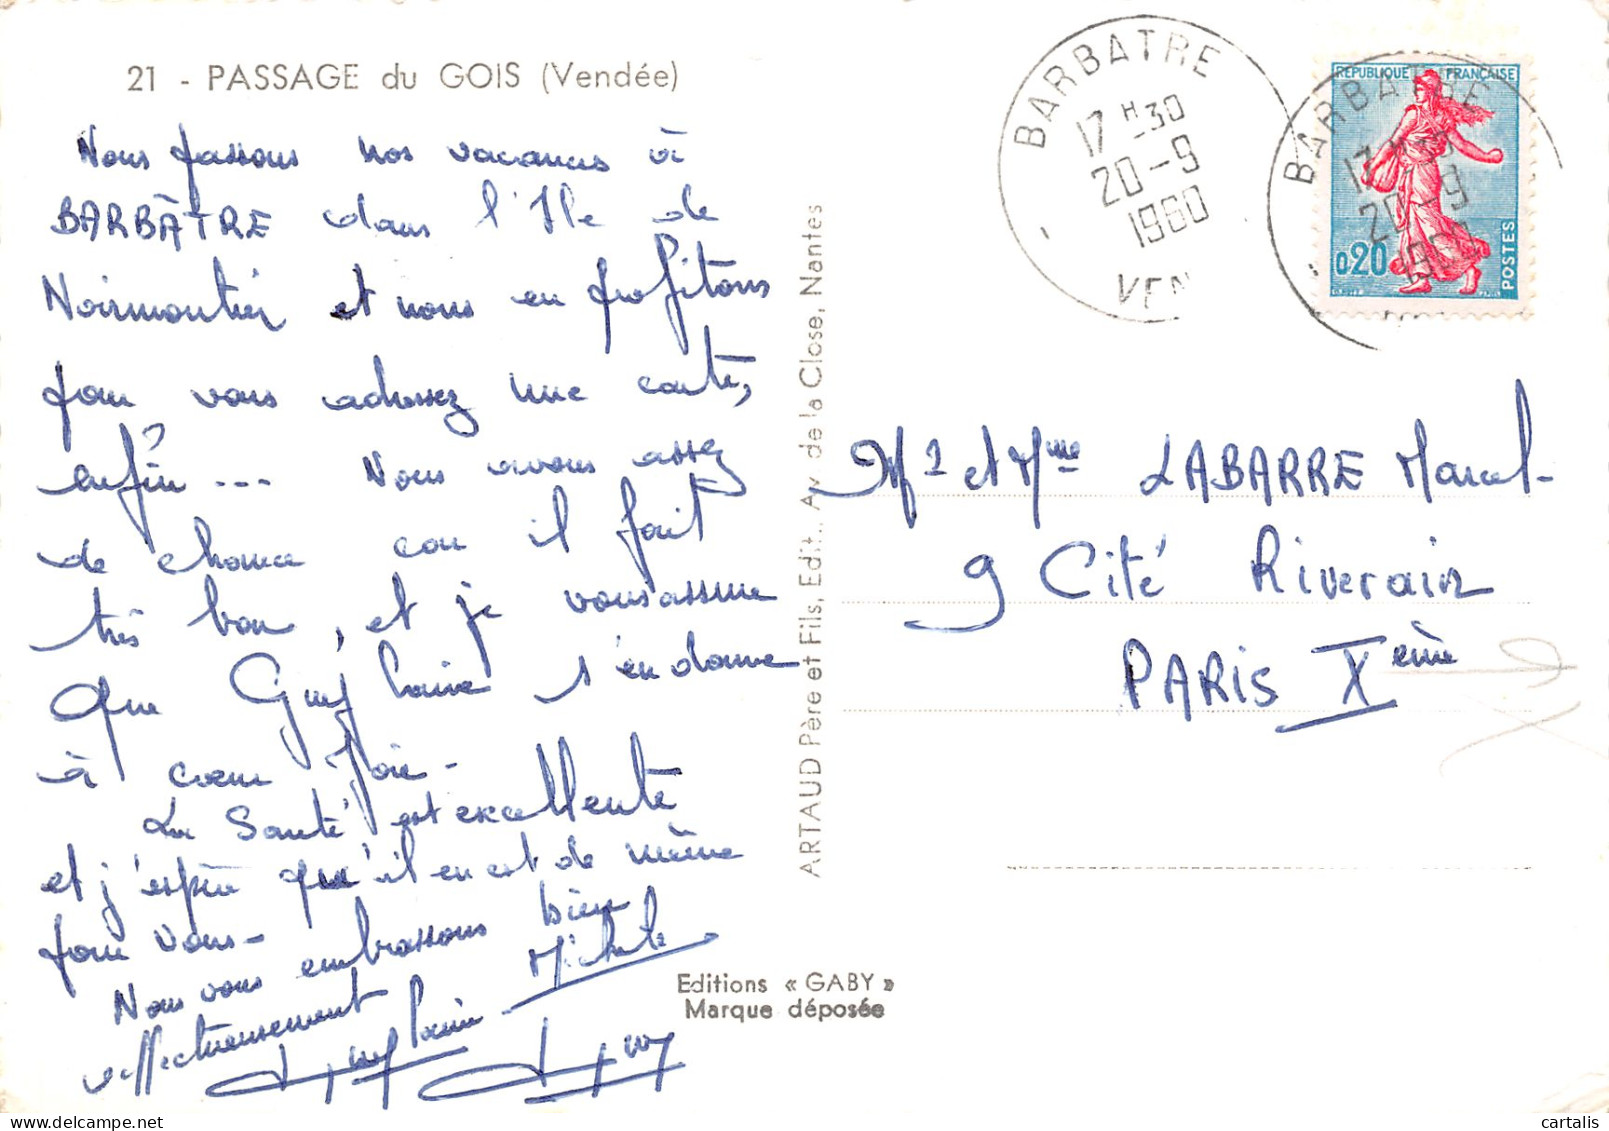 21 - PASSAGE du GOIS (Vendée)
Nous passons nos vacances à
BARBÂTRE dans l'Ile de
Noirmoutier et nous en profitons
pour vous adressez une carte,
enfin ... Nous avons assez
de chance car il fait
très bon, et je vous assure
que Guylaine s'en donne
à cœur joie -
La Santé est excellente
et j'espère qu'il en est de même
pour vous -
Nous vous embrassons bien
affectueusement
Michele
Guylaine
Guy
ARTAUD Père et Fils, Edit., Av. de la Close, Nantes
Editions « GABY »
Marque déposée
BARBATRE
17 H 30
20-9
1960
VEN
BARBATRE
17 H 30
20-9
1960
REPUBLIQUE FRANÇAISE
0,20
POSTES
Mr et Mme LABARRE Marcel
9 Cité Riverain
PARIS Xème
cartalis